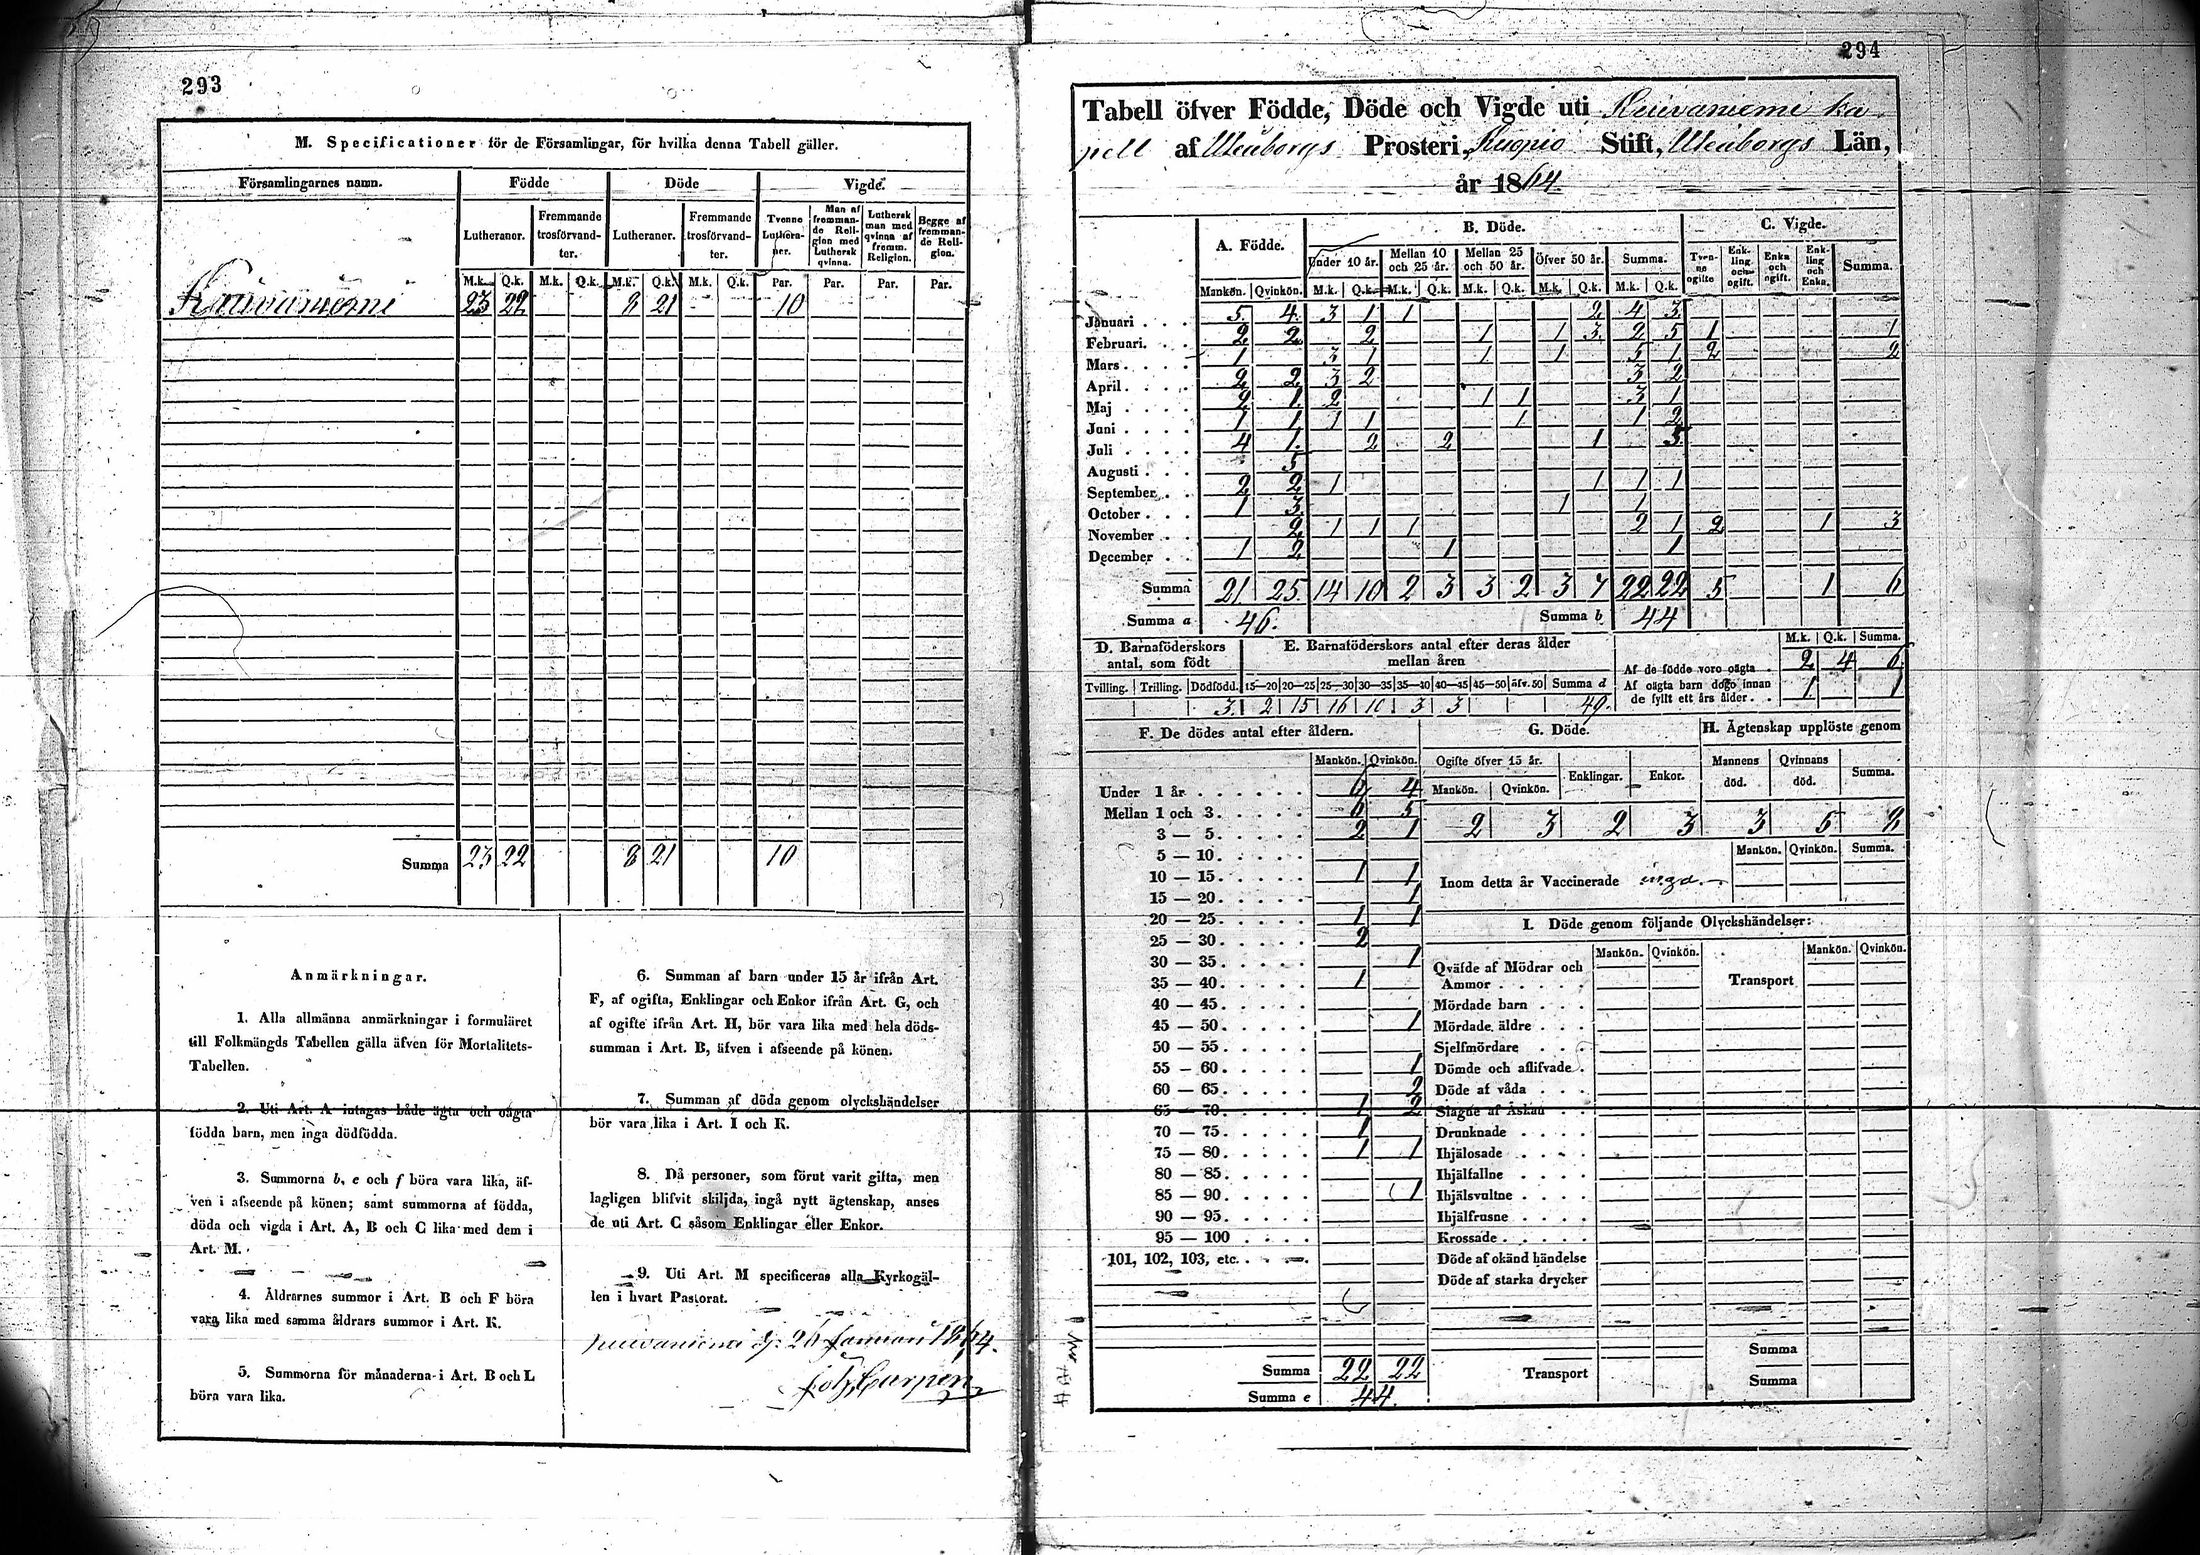 293
M. Specificationer för de Församlingar, för hvilka denna Tabell gäller.
Församlingarnes namn. Födde Döde Vigde.
Lutheraner. Fremmande trosförvandter. Lutheraner. Fremmande trosförvandter. Tvenne Lutheraner. Man af fremmande Religion med Luthersk qvinna. Luthersk man med qvinna af fremm. Religion. Begge af fremmande Religion.
M.k. Q.k. M.k. Q.k. M.k. Q.k. M.k. Q.k. Par. Par. Par. Par.
Kuivaniemi 23 22 8 21 10
Summa 23 22 8 21 10
Anmärkningar.
1. Alla allmänna anmärkningar i formuläret
till Folkmängds Tabellen gälla äfven för Mortalitets-
Tabellen.
2. Uti Art. A intagas både ägta och oägta
födda barn, men inga dödfödda.
3. Summorna b, e och f böra vara lika, äf-
ven i afseende på könen; samt summorna af födda,
döda och vigda i Art. A, B och C lika med dem i
Art. M.
4. Åldrarnes summor i Art. B och F böra
vara lika med samma åldrars summor i Art. K.
5. Summorna för månaderna i Art. B och L
böra vara lika.
6. Summan af barn under 15 år ifrån Art.
F, af ogifta, Enklingar och Enkor ifrån Art. G, och
af ogifte ifrån Art. H, bör vara lika med hela döds-
summan i Art. B, äfven i afseende på könen.
7. Summan af döda genom olyckshändelser
bör vara lika i Art. I och K.
8. Då personer, som förut varit gifta, men
lagligen blifvit skiljda, ingå nytt ägtenskap, anses
de uti Art. C såsom Enklingar eller Enkor.
9. Uti Art. M specificeras alla Kyrkogäl-
len i hvart Pastorat.
Kuivaniemi d. 26 Januari 1864.
294
Tabell öfver Födde, Döde och Vigde uti Kuivaniemi ka-
pell af Uleåborgs Prosteri, Kuopio Stift, Uleåborgs Län,
år 1864.
A. Födde. B. Döde. C. Vigde.
Under 10 år. Mellan 10 och 25 år. Mellan 25 och 50 år. Öfver 50 år. Summa. Tvenne ogifte Enkling och ogift. Enka och ogift. Enkling och Enka. Summa.
Mankön. Qvinkön. M.k. Q.k. M.k. Q.k. M.k. Q.k. M.k. Q.k. M.k. Q.k.
Januari . . . 5 4 3 1 1 2 4 3
Februari. . . 2 2 2 1 1 3 2 5 1 1
Mars . . . . 1 3 1 1 1 5 1 2 2
April . . . . 2 2 3 2 3 2
Maj . . . . 2 1 2 1 1 3 1
Juni . . . . 1 1 1 1 1 1 2
Juli . . . . 4 1 2 2 1 5
Augusti . . . 5
September . . 2 2 1 1 1 1
October . . . 1 3 1 1
November . . 2 1 1 1 2 1 2 1 3
December . . 1 2 1 1
Summa 21 25 14 10 2 3 3 2 3 7 22 22 5 1 6
Summa a 46. Summa b 44
D. Barnaföderskors antal, som födt
Tvilling. Trilling. Dödfödd.
3
E. Barnaföderskors antal efter deras ålder mellan åren
15—20 20—25 25—30 30—35 35—40 40—45 45—50 öfv. 50 Summa d
2 15 16 10 3 3 49.
M.k. Q.k. Summa.
Af de födde voro oägta . 2 4 6
Af oägta barn dogo innan de fyllt ett års ålder . . 1 1
F. De dödes antal efter åldern.
Mankön. Qvinkön.
Under 1 år . . . . . . 6 4
Mellan 1 och 3 . . . . . 6 5
3 — 5 . . . . . 2 1
5 — 10 . . . . .
10 — 15 . . . . . 1 1
15 — 20 . . . . . 1
20 — 25 . . . . . 1 1
25 — 30 . . . . . 2
30 — 35 . . . . . 1
35 — 40 . . . . . 1
40 — 45 . . . . .
45 — 50 . . . . . 1
50 — 55 . . . . .
55 — 60 . . . . . 1
60 — 65 . . . . . 2
65 — 70 . . . . . 1 2
70 — 75 . . . . . 1
75 — 80 . . . . . 1 1
80 — 85 . . . . .
85 — 90 . . . . . 1
90 — 95 . . . . .
95 — 100 . . . .
101, 102, 103, etc. . . .
Summa 22 22
Summa e 44.
G. Döde.
Ogifte öfver 15 år. Enklingar. Enkor.
Mankön. Qvinkön.
2 3 2 3
H. Ägtenskap upplöste genom
Mannens död. Qvinnans död. Summa.
3 5 8
Mankön. Qvinkön. Summa.
Inom detta år Vaccinerade inga.
I. Döde genom följande Olyckshändelser:
Mankön. Qvinkön. Mankön. Qvinkön.
Qväfde af Mödrar och Ammor . . . . . Transport
Mördade barn . . .
Mördade äldre . . .
Sjelfmördare . . .
Dömde och aflifvade .
Döde af våda . . .
Slagne af Åskan . .
Drunknade . . . .
Ihjälosade . . . .
Ihjälfallne . . . .
Ihjälsvultne . . . .
Ihjälfrusne . . . .
Krossade . . . . .
Döde af okänd händelse
Döde af starka drycker
Summa
Transport Summa